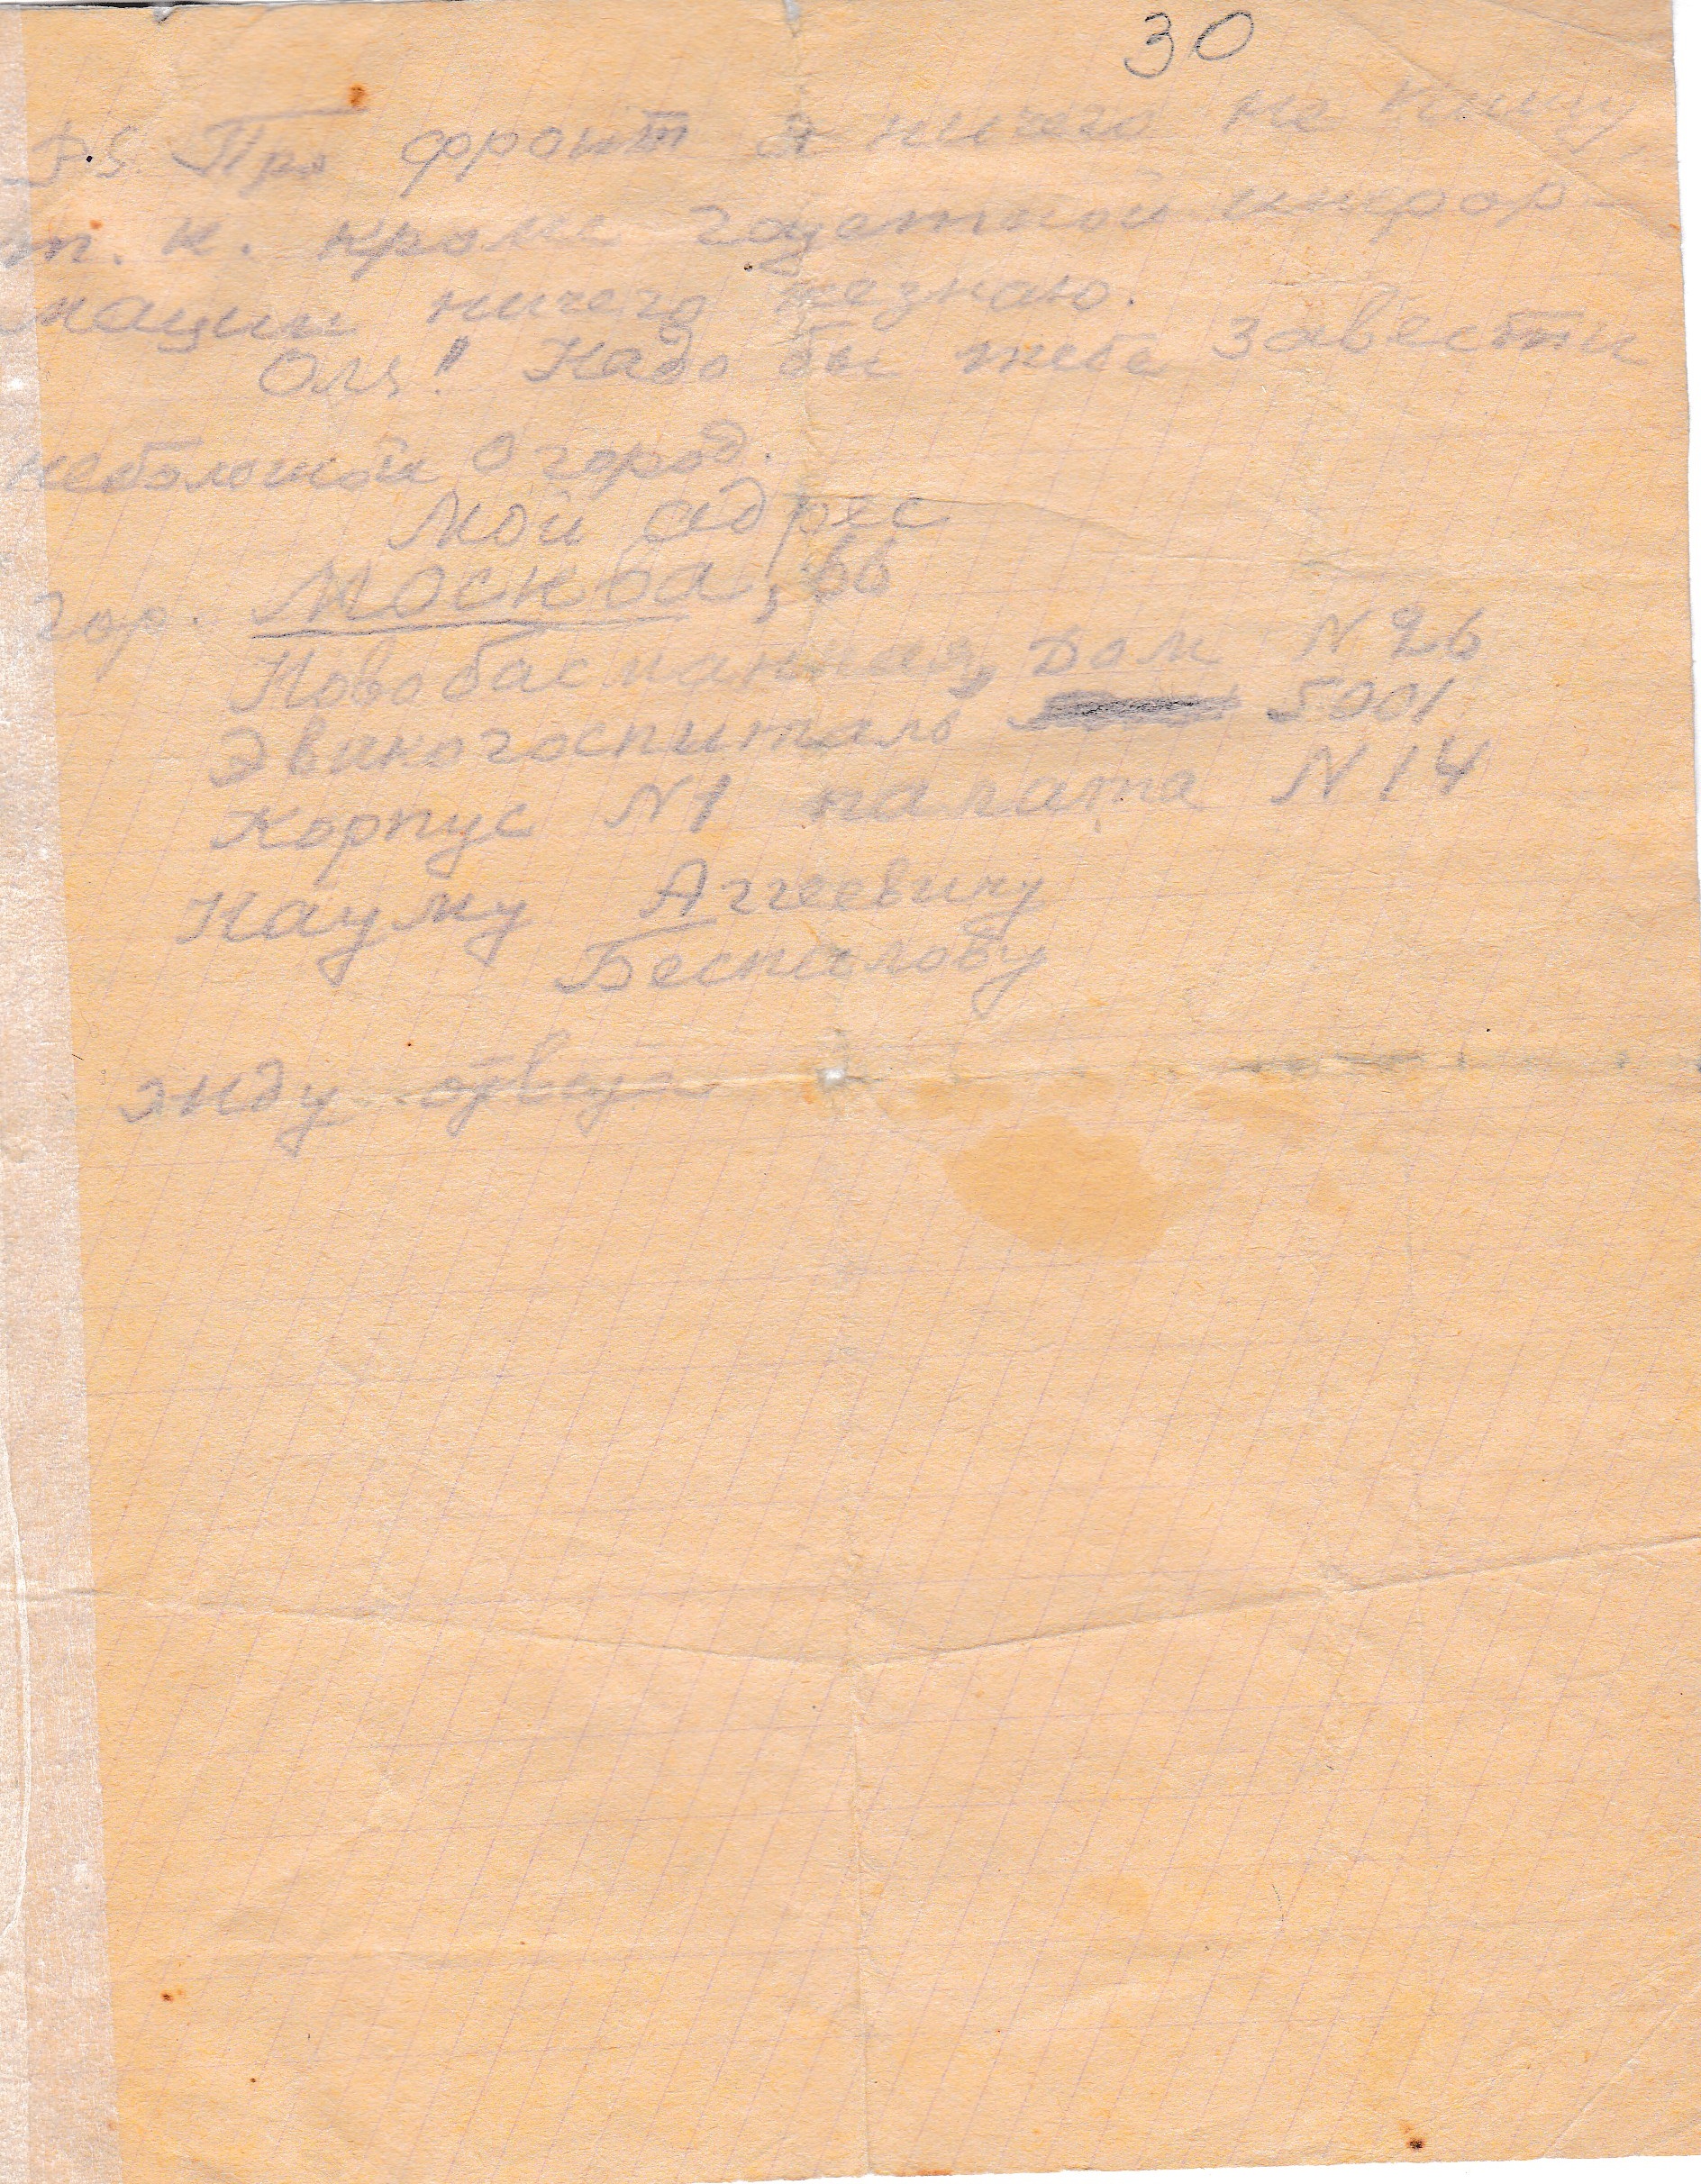 30
P.S. Про фронт я ничего не пишу,
т. к. кроме газетной инфор-
мации ничего незнаю.
Оля! Надо бы тебе завести
небольшой огород.
Мой адрес
гор. Москва, 66
Новобасманная, дом N 26
Эвакогоспиталь 5001
Корпус N1 палата N 14
Науму Аггеевичу
Беспалову
жду ответа